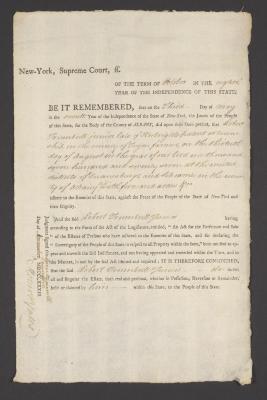 New-York, Supreme Court, ss.
OF THE TERM OF October IN THE eighth
YEAR OF THE INDEPENDENCE OF THIS STATE;
BE IT REMEMBERED, that on the Third Day of May
in the seventh Year of the Independence of the State of New-York, the Jurors of the People
of this State, for the Body of the County of ALBANY, did upon their Oath present, that Robert
junior late of
in the county of Tryon on the thirteenth
day of august in the year of our lord one thousand
seven hundred and seventy seven at the united
districts of and in the coun
ty of albany with force and arms &c
adhere to the Enemies of this State, against the Peace of the People of the State of New-York and
their Dignity.
And the said Robert Junior having
according to the Form of the Act of the Legislature, entitled, "An Act for the Forfeiture and Sale
of the Estates of Persons who have adhered to the Enemies of this State, and for declaring the
Sovereignty of the People of this State in respect to all Property within the same," been notified to ap-
pear and traverse the said Indictment, and not having appeared and traversed within the Time, and in
the Manner, in and by the said Act limited and required; IT IS THEREFORE CONSIDERED,
that the said Robert Junior do
all and singular the Estate, both real and personal, whether in Possession, Reversion or Remainder,
held or claimed by him within this State, to the People of this State.
Judgment signed the
Day of MDCCLXXXIII